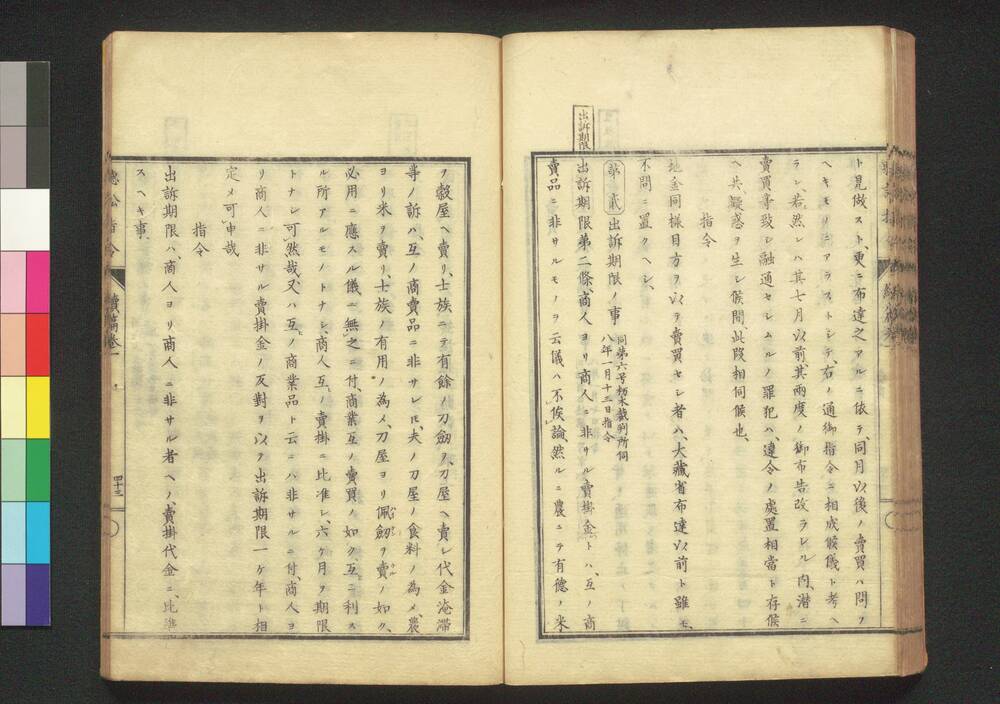 ト見做スト、更ニ布達之アルニ依テ、同月以後ノ賣買ハ問フ
ヘキモリニアラストシテ、右ノ通御指令ニ相成候儀ト考ヘ
ラレ、若然レハ其七月以前、其兩度ノ御布告改ラレル内、潜ニ
賣買等致シ融通セシムルノ罪犯ハ、違令ノ處置相當ト存候
ヘ共、疑惑ヲ生シ候間、此段相伺候也、
指令
地金同様目方ヲ以テ賣買セシ者ハ、大藏省布達以前ト雖モ、
不問ニ置クヘシ、
出訴期限
第貳 出訴期限ノ事 同第六号栃木裁判所伺
八年一月十三日指令
出訴期限第二條、商人ヨリ商人ニ非サル賣掛金トハ、互ノ商
賣品ニ非サルモノヲ云儀ハ不俟論、然ルニ農ニテ有德ノ米
ノ穀屋ヘ賣リ、士族ニテ有餘ノ刀劔ノ、刀屋ヘ賣シ代金淹滞
等ノ訴ハ、互ノ商賣品ニ非サレ𪜈、夫ノ刀屋ノ食料ノ為メ、農
ヨリ米ヲ賣リ、士族ノ有用ノ為メ、刀屋ヨリ佩劔ヲ賣ノ如ク、
必用ニ應スル儀ニ無之ニ付、商業互ノ賣買ノ如ク、互ニ利ス
ル所アルモノトナシ、商人互ノ賣掛ニ比准シ、六ケ月ヲ期限
トナシ可然哉、又ハ互ノ商業品ト云ニハ非サルニ付、商人ヨ
リ商人ニ非サル賣掛金ノ反對ヲ以テ出訴期限一ケ年ト相
定メ可申哉
指令
出訴期限ハ、商人ヨリ商人ニ非サル者ヘノ、賣掛代金ニ、比準
スヘキ事、
續篇卷一
四十三